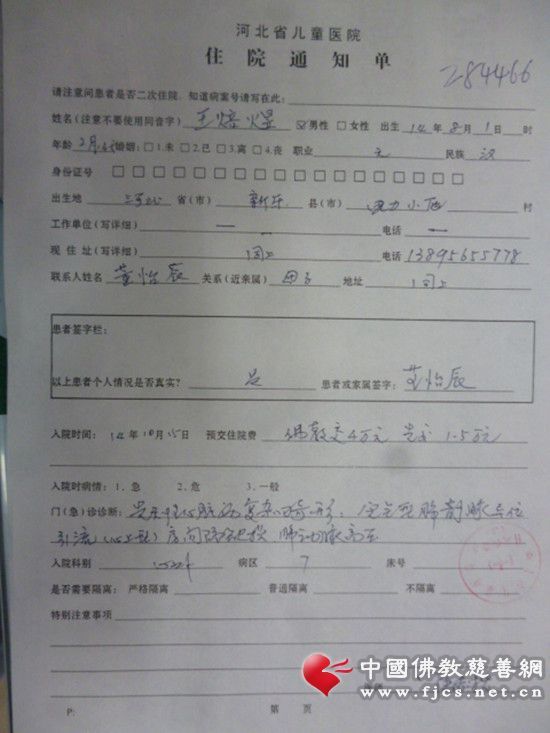 河北省儿童医院
住院通知单
284466
请注意问患者是否二次住院，知道病案号请写在此：
姓名(注意不要使用同音字) 王焙煜 ☑男性 □女性 出生 14年8月1日 时
年龄 2月 婚姻：□1.未 □2.已 □3.离 □4.夜 职业 无 民族 汉
身份证号 □□□□□□□□□□□□□□□□□□
出生地 省(市) 新乐 县(市) 村
工作单位(写详细) 一 电话 一
现住址(写详细) 同上 电话 13895655778
联系人姓名 董怡辰 关系(近亲属) 母子 地址 同上
患者签字栏：
以上患者个人情况是否真实？ 是 患者或家属签字：董怡辰
入院时间：14年10月15日 预交住院费 4万元 1.5万元
入院时病情：1．急 2．危 3．一般
门(急)诊诊断：先天性心脏病复杂畸形：完全型肺静脉异位
引流(心上型) 房间隔缺损 肺动脉高压
入院科别 心外 病区 7 床号
是否需要隔离：严格隔离 普通隔离 不隔离
特别注意事项
P: 第 页
中國佛教慈善網
www.fjcs.net.cn